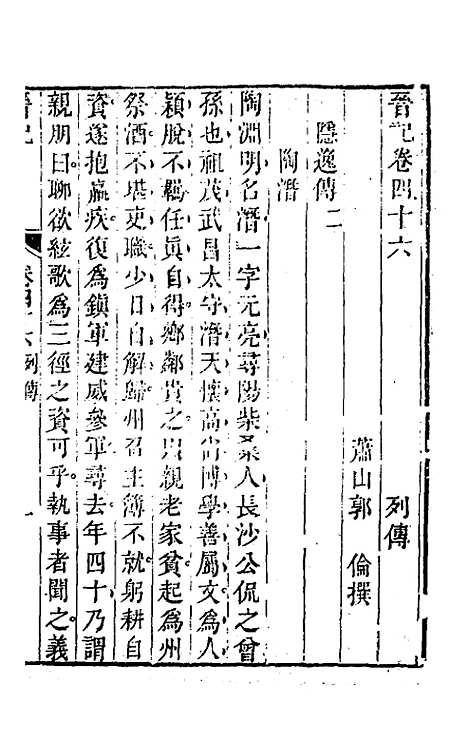 晉記卷四十六
列傳
蕭山郭 倫撰
隱逸傳二
陶潛
陶淵明名潛一字元亮尋陽柴桑人長沙公侃之曾
孫也祖茂武昌太守潛天懷高尚博學善屬文為人
穎脫不羈任眞自得鄉鄰貴之以親老家貧起為州
祭酒不堪吏職少日自解歸州召主簿不就躬耕自
資遂抱羸疾復為鎭軍建威參軍尋去年四十乃謂
親朋曰聊欲絃歌為三徑之資可乎執事者聞之義
晉記
卷四十六列傳
一